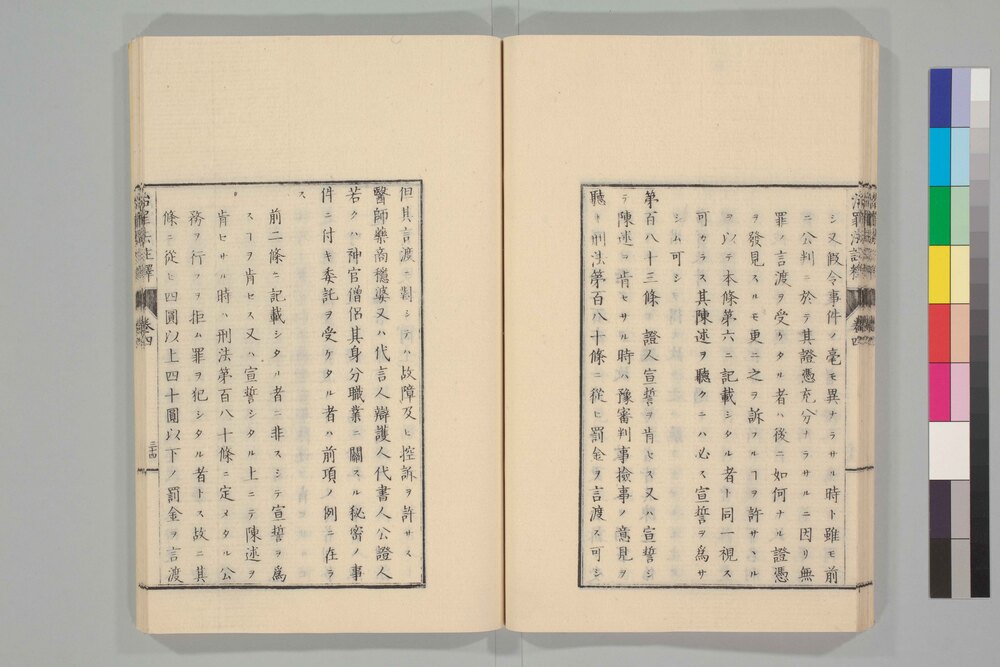 シ又假令事件ノ毫モ異ナラサル時ト雖モ前
ニ公判ニ於テ其證憑充分ナラサルニ因リ無
罪ノ言渡ヲ受ケタル者ハ後ニ如何ナル證憑
ヲ發見スルモ更ニ之ヲ訴フルヿヲ許サヽル
ヲ以テ本條第六ニ記載シタル者ト同一視ス
可カラス其陳述ヲ聽クニハ必ス宣誓ヲ爲サ
シム可シ
第百八十三條 證人宣誓ヲ肯セス又ハ宣誓シ
テ陳述ヲ肯セサル時ハ豫審判事撿事ノ意見ヲ
聽ト刑法第百八十條ニ從ヒ罰金ヲ言渡ス可シ
治罪法註釋 卷四
但其言渡ニ對シテハ故障及ヒ控訴ヲ許サス
醫師藥商穩婆又ハ代言人辯護人代書人公證人
若クハ神官僧侶其身分職業ニ關スル秘密ノ事
件ニ付キ委託ヲ受ケタル者ハ前項ノ例ニ在ラ
ス
前二條ニ記載シタル者ニ非スシテ宣誓ヲ爲
スヿヲ肯セス又ハ宣誓シタル上ニテ陳述ヲ
肯セサル時ハ刑法第百八十條ニ定メタル公
務ヲ行フヲ拒ム罪ヲ犯シタル者トス故ニ其
條ニ從ヒ四圓以上四十圓以下ノ罰金ヲ言渡
治罪法註釋 卷四 三十四